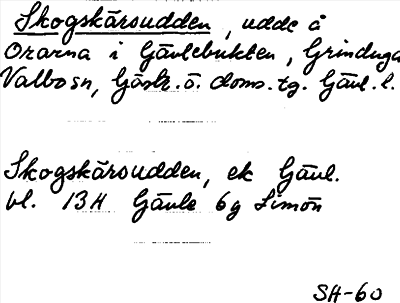 Skogskärsudden, udde å
Orarna i Gävlebukten, Grinduga
Valbo sn, Gästr. ö. doms. tg. Gävl. l.
Skogskärsudden, ek Gävl.
bl. 13H Gävle 6g Limön
SH-60